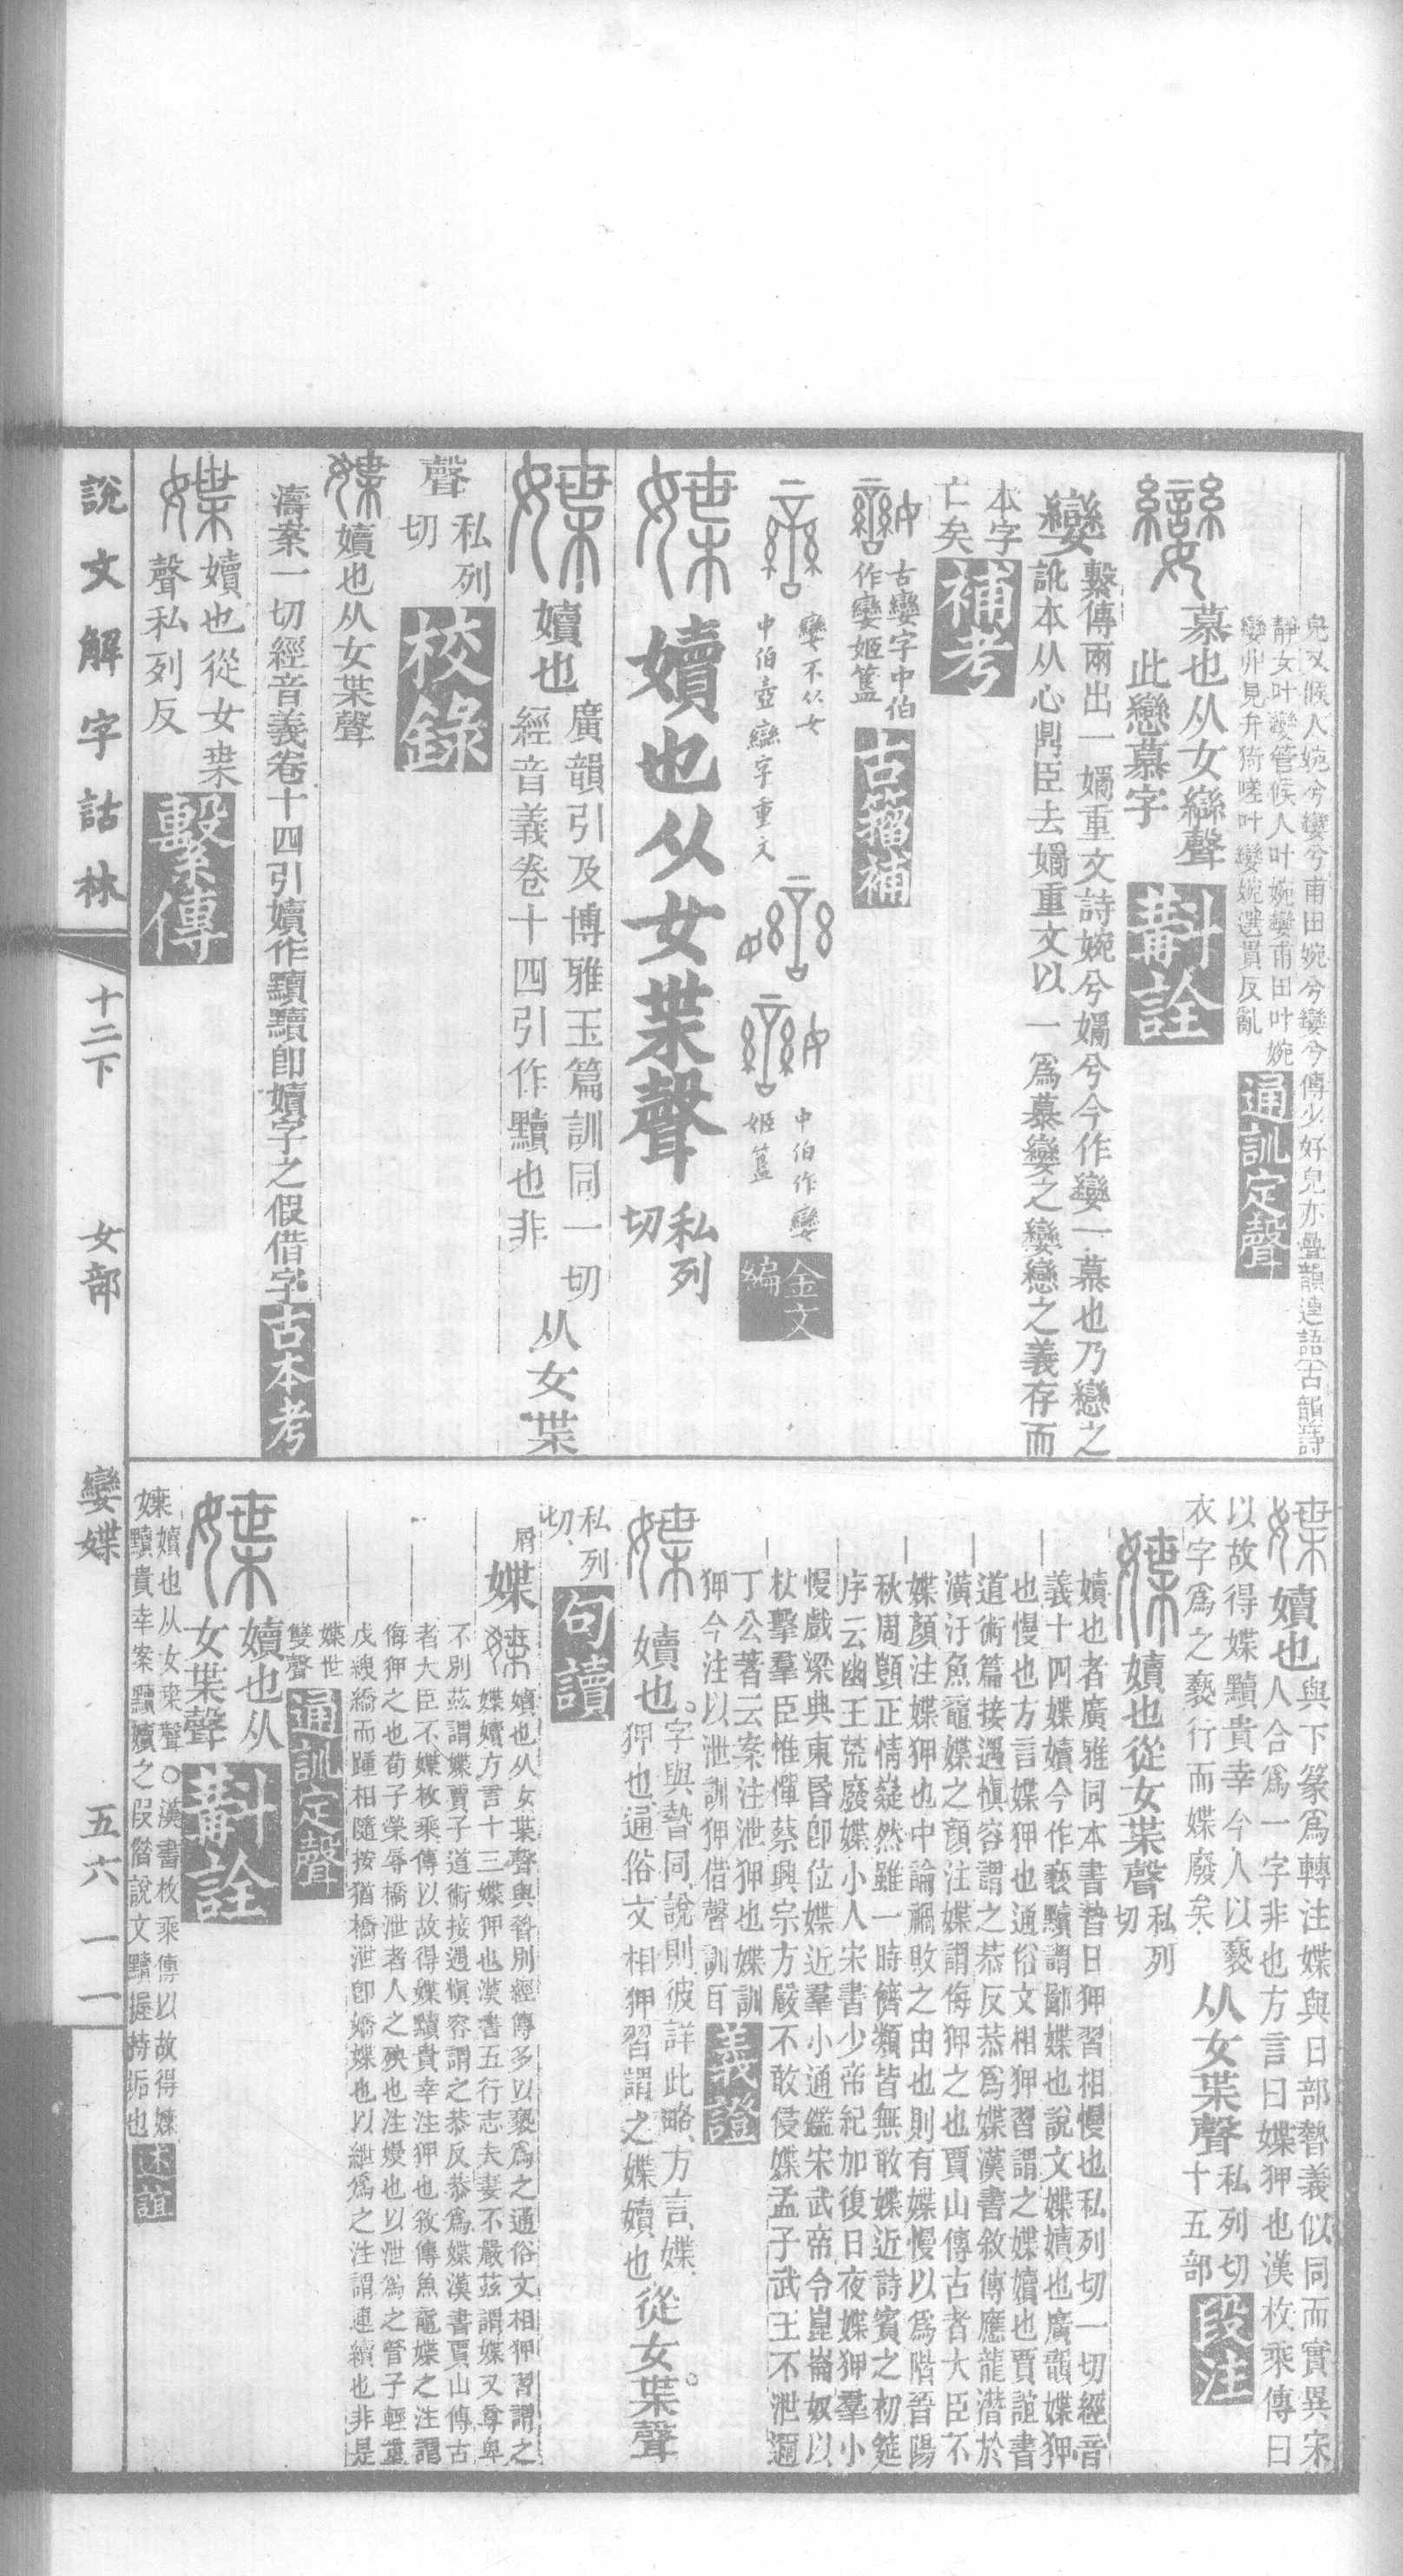 皃又候人婉兮孌兮甫田婉兮孌兮傳少好皃亦疊韻連語古韻詩
靜女叶孌管候人叶婉孌甫田叶婉
孌丱見弁猗嗟叶孌婉選貫反亂
通訓定聲
慕也从女䜌聲
此戀慕字
斠詮
孌
繫傳兩出一嫡重文詩婉兮嫡兮今作孌一慕也乃戀之
訛本从心鼎臣去嫡重文以一爲慕孌之孌戀之義存而
本字
亡矣
補考
古孌字中伯
作孌姬簋
古籀補
孌不从女
中伯壺䜌字重文
中伯作孌
姬簋
金文
編
嬻也从女枼聲
私列
切
嬻也
廣韻引及博雅玉篇訓同一切
經音義卷十四引作黷也非
从女枼
聲
私列
切
校錄
嬻也从女枼聲
濤案一切經音義卷十四引嬻作黷黷卽嬻字之假借字
古本考
嬻也從女枼
聲私列反
繫傳
說文解字詁林
十二下
女部
孌媟
五六一一
嬻也
與下篆爲轉注媟與日部暬義似同而實異宋
人合爲一字非也方言曰媟狎也漢枚乘傳曰
以故得媟黷貴幸今人以褻
衣字爲之褻行而媟廢矣
从女枼聲
私列切
十五部
段注
嬻也從女枼聲
私列
切
嬻也者廣雅同本書暬日狎習相慢也私列切一切經音
義十四媟嬻今作褻黷謂鄙媟也說文媟嬻也廣韻媟狎
也慢也方言媟狎也通俗文相狎習謂之媟嬻也賈誼書
道術篇接遇愼容謂之恭反恭爲媟漢書敘傳應龍潛於
潢汙魚黿媟之顔注媟謂侮狎之也賈山傳古者大臣不
媟顔注媟狎也中論禍敗之由也則有媟慢以爲階晉陽
秋周顗正情嶷然雖一時儕類皆無敢媟近詩賓之初筵
序云幽王荒廢媟小人宋書少帝紀加復日夜媟狎羣小
慢戲梁典東昏卽位媟近羣小通鑑宋武帝令崑崙奴以
杖擊羣臣惟憚蔡興宗方嚴不敢侵媟孟子武王不泄邇
丁公著云案注泄狎也媟訓
狎今注以泄訓狎借聲訓耳
義證
嬻也
。字與暬同說則彼詳此略方言媟
狎也通俗文相狎習謂之媟嬻也
。從女枼聲
私列
切
句讀
屑
媟
嬻也从女枼聲與暬別經傳多以褻爲之通俗文相狎習謂之
媟嬻方言十三媟狎也漢書五行志夫妻不嚴茲謂媟又尊卑
不別茲謂媟賈子道術接遇愼容謂之恭反恭爲媟漢書賈山傳古
者大臣不媟枚乘傳以故得媟黷貴幸注狎也敘傳魚黿媟之注謂
侮狎之也荀子榮辱橋泄者人之殃也注嫚也以泄爲之管子輕重
戊䋺繑而踵相隨按猶橋泄卽嬌媟也以紲爲之注謂連續也非是
媟世
雙聲
通訓定聲
嬻也从
女枼聲
斠詮
嬻也从女枼聲○漢書枚乘傳以故得媟
黷貴幸案黷嬻之叚借說文黷握持垢也
述誼